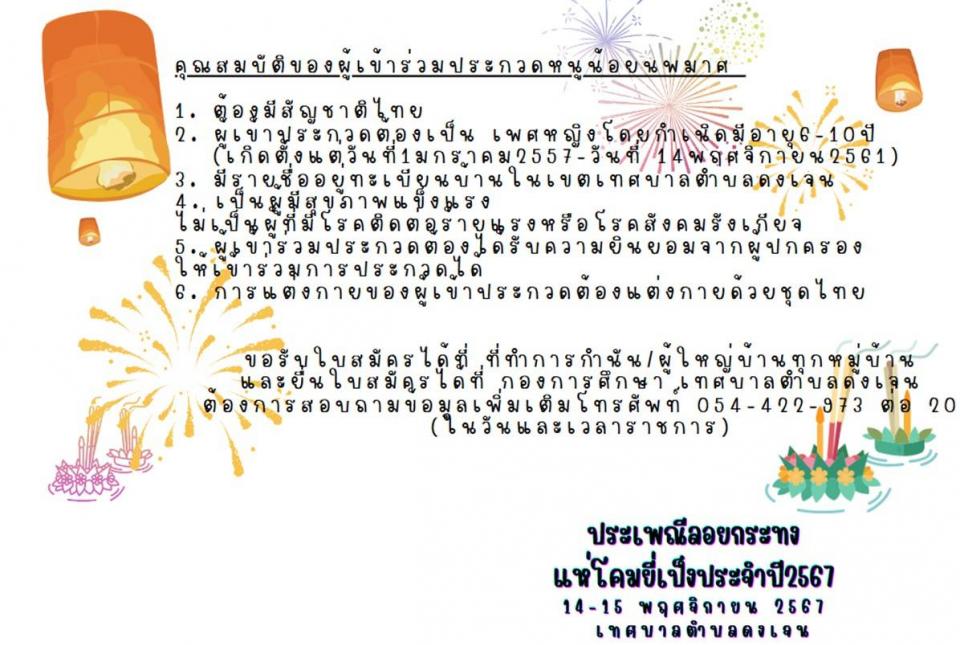 คุณสมบัติของผู้เข้าร่วมประกวดหนูน้อยนพมาศ
1. ต้องมีสัญชาติไทย
2. ผู้เข้าประกวดต้องเป็น เพศหญิงโดยกำเนิดมีอายุ6-10ปี
(เกิดตั้งแต่วันที่1มกราคม2557-วันที่ 14พฤศจิกายน2561)
3. มีรายชื่ออยู่ทะเบียนบ้านในเขตเทศบาลตำบลดงเจน
4. เป็นผู้มีสุขภาพแข็งแรง
ไม่เป็นผู้ที่มีโรคติดต่อร้ายแรงหรือโรคสังคมรังเกียจ
5. ผู้เข้าร่วมประกวดต้องได้รับความยินยอมจากผู้ปกครอง
ให้เข้าร่วมการประกวดได้
6. การแต่งกายของผู้เข้าประกวดต้องแต่งกายด้วยชุดไทย
ขอรับใบสมัครได้ที่ ที่ทำการกำนัน/ผู้ใหญ่บ้านทุกหมู่บ้าน
และยื่นใบสมัครได้ที่ กองการศึกษา เทศบาลตำบลดงเจน
ต้องการสอบถามข้อมูลเพิ่มเติมโทรศัพท์ 054-422-073 ต่อ 20
(ในวันและเวลาราชการ)
ประเพณีลอยกระทง
แห่โคมยี่เป็งประจำปี2567
14-15 พฤศจิกายน 2567
เทศบาลตำบลดงเจน